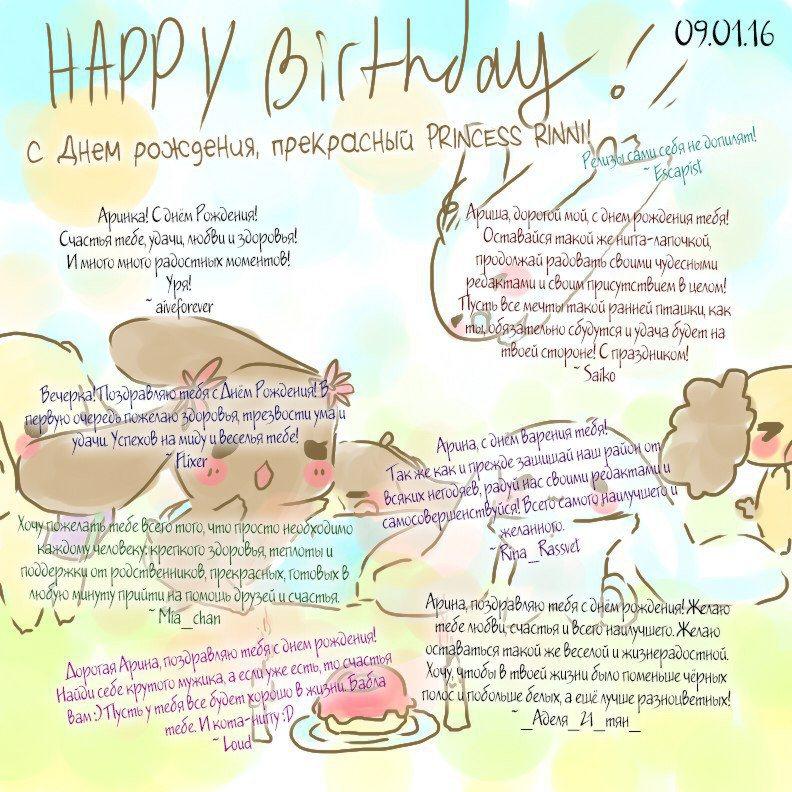 HAPPY Birthday!
09.01.16
с Днем рождения, прекрасный PRINCESS RINNI!
Релизы сами себя не допилят!
~ Escapist
Аринка! С днём Рождения!
Счастья тебе, удачи, любви и здоровья!
И много много радостных моментов!
Уря!
~ aiveforever
Ариша, дорогой мой, с днем рождения тебя!
Оставайся такой же нигга-лапочкой,
продолжай радовать своими чудесными
редактами и своим присутствием в целом!
Пусть все мечты такой ранней пташки, как
ты, обязательно сбудутся и удача будет на
твоей стороне! С праздником!
~ Saiko
Вечерка! Поздравляю тебя с Днём Рождения! В
первую очередь пожелаю здоровья, трезвости ума и
удачи. Успехов на миду и веселья тебе!
~ Flixer
Арина, с днём варения тебя!
Так же как и прежде защищай наш район от
всяких негодяев, радуй нас своими редактами и
самосовершенствуйся! Всего самого наилучшего и
желанного.
~ Rina_Rassvet
Хочу пожелать тебе всего того, что просто необходимо
каждому человеку: крепкого здоровья, теплоты и
поддержки от родственников, прекрасных, готовых в
любую минуту прийти на помощь друзей и счастья.
~ Mia_chan
Арина, поздравляю тебя с днём рождения! Желаю
тебе любви, счастья и всего наилучшего. Желаю
оставаться такой же веселой и жизнерадостной.
Хочу, чтобы в твоей жизни было поменьше чёрных
полос и побольше белых, а ещё лучше разноцветных!
~ _Аделя_21_тян_
Дорогая Арина, поздравляю тебя с днем рождения!
Найди себе крутого мужика, а если уже есть, то счастья
вам :) Пусть у тебя все будет хорошо в жизни. Бабла
тебе. И кота-нигу :D
~ Loud